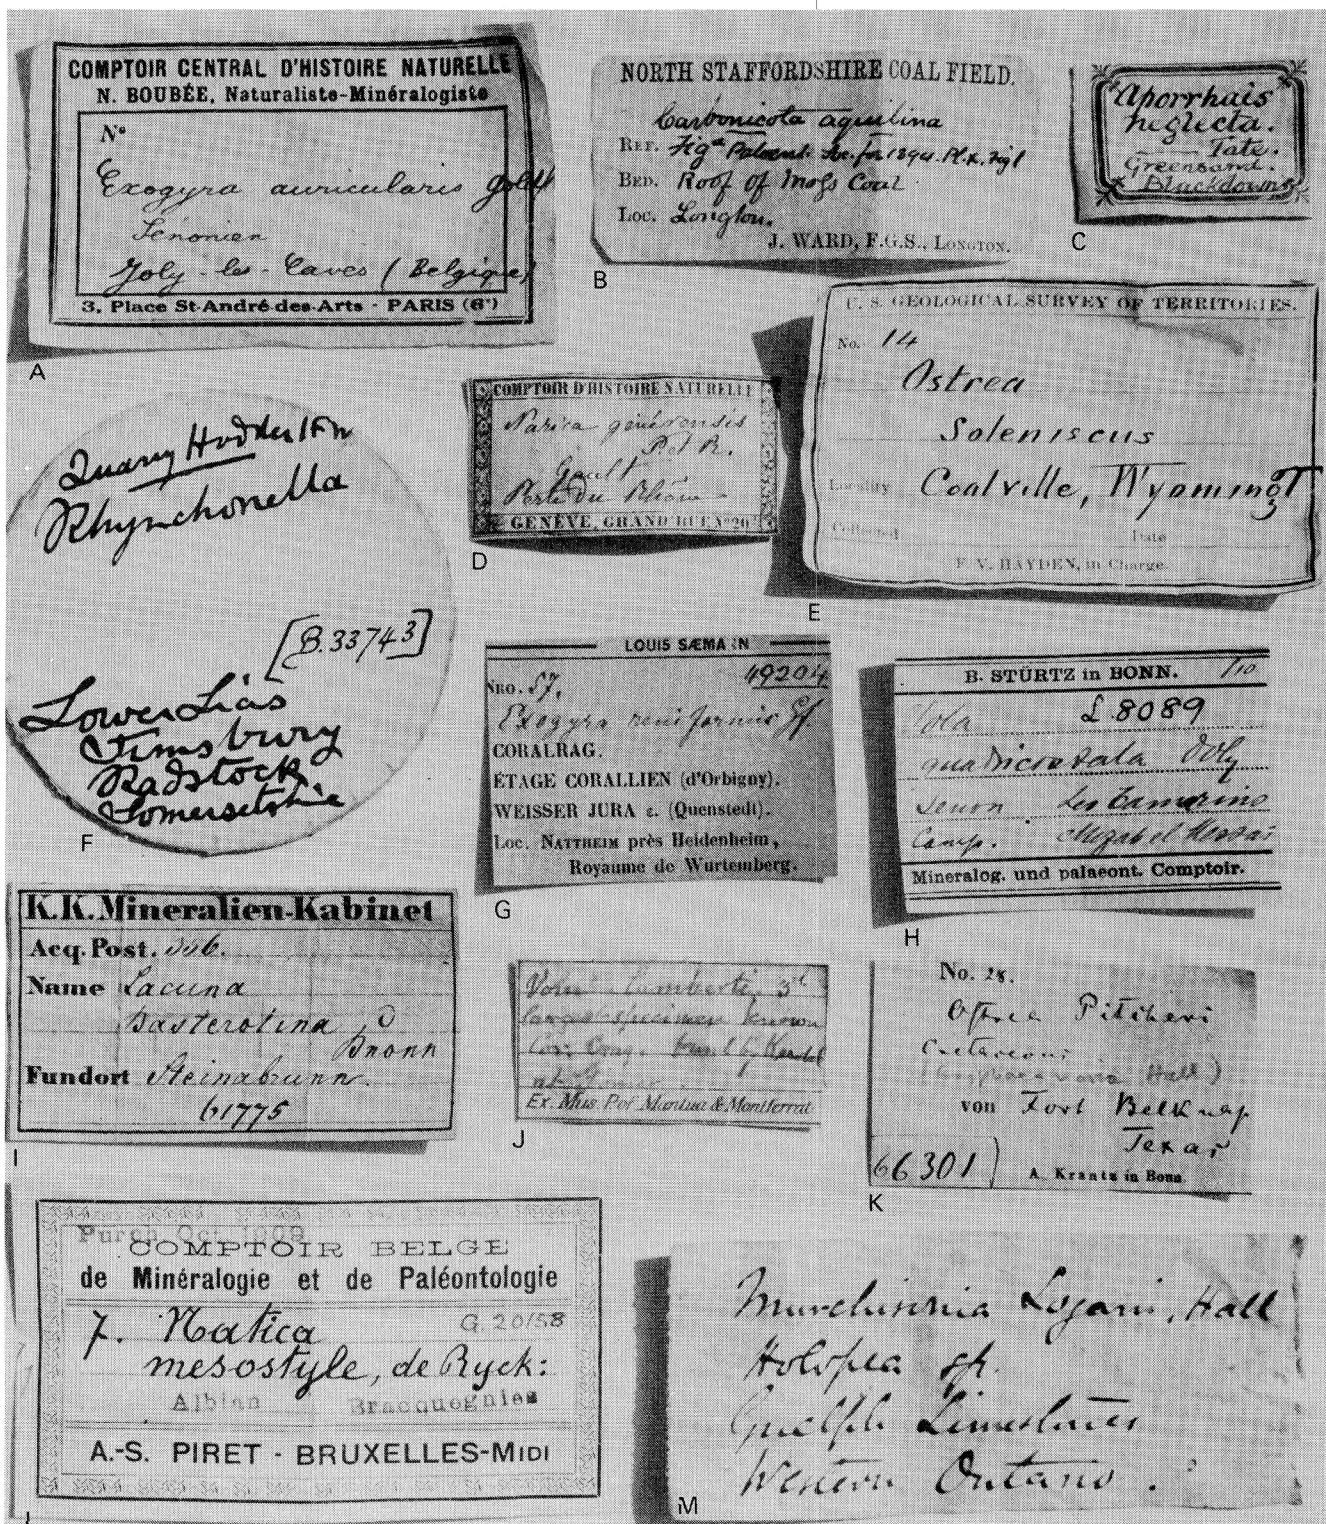 COMPTOIR CENTRAL D'HISTOIRE NATURELLE
N. BOUBÉE, Naturaliste-Minéralogiste
N°
Exogyra auricularis Goldf
Sénonien
Joly-les-Caves (Belgique)
3, Place St-André-des-Arts - PARIS (6e)
A
NORTH STAFFORDSHIRE COAL FIELD.
Carbonicola aquilina
REF. Figd Palaeont. Soc. for 1894. Pl. x. Fig 1
BED. Roof of Moss Coal
LOC. Longton.
J. WARD, F.G.S., LONGTON.
B
Aporrhais
neglecta.
Tate.
Greensand.
Blackdown
C
COMPTOIR D'HISTOIRE NATURELLE
Narica genevensis
P. et R.
Gault
Perte du Rhône
GENÈVE, GRAND RUE N° 20
D
U. S. GEOLOGICAL SURVEY OF TERRITORIES.
No. 14
Ostrea
Soleniscus
Locality Coalville, Wyoming T
Collected Date
F. V. HAYDEN, in Charge.
E
Quarry
Rhynchonella
[B.33743]
Lower Lias
Timsbury
Radstock
Somersetshire
F
LOUIS SÆMANN
NRO. 57. 49204
Exogyra reniformis Gf.
CORALRAG.
ÉTAGE CORALLIEN (d'Orbigny).
WEISSER JURA ε. (Quenstedt).
Loc. NATTHEIM près Heidenheim,
Royaume de Wurtemberg.
G
B. STÜRTZ in BONN. /10
Vola L 8089
quadricostata d'Orby
Senon Les Tamarins
Camp.
Mineralog. und palaeont. Comptoir.
H
K.K. Mineralien-Kabinet
Acq. Post.
Name Lacuna
Basterotina
Bronn
Fundort Steinabrunn.
61775
I
Voluta Lamberti. 3rd
largest specimen known
Cor. Crag.
Ex. Mus. Pof. Mantua & Montferrat
J
No. 28.
Ostrea Pitcheri
Cretaceous
Hall)
von Fort Belknap
Texas
66301 A. Krantz in Bonn.
K
Purch Oct 1909
COMPTOIR BELGE
de Minéralogie et de Paléontologie
7. Natica G. 20158
mesostyle, de Ryck:
Albian Bracquegnies
A.-S. PIRET - BRUXELLES-MIDI
L
Murchisonia Logani, Hall
Holopea sp.
Guelph Limestones
Western Ontario.
M